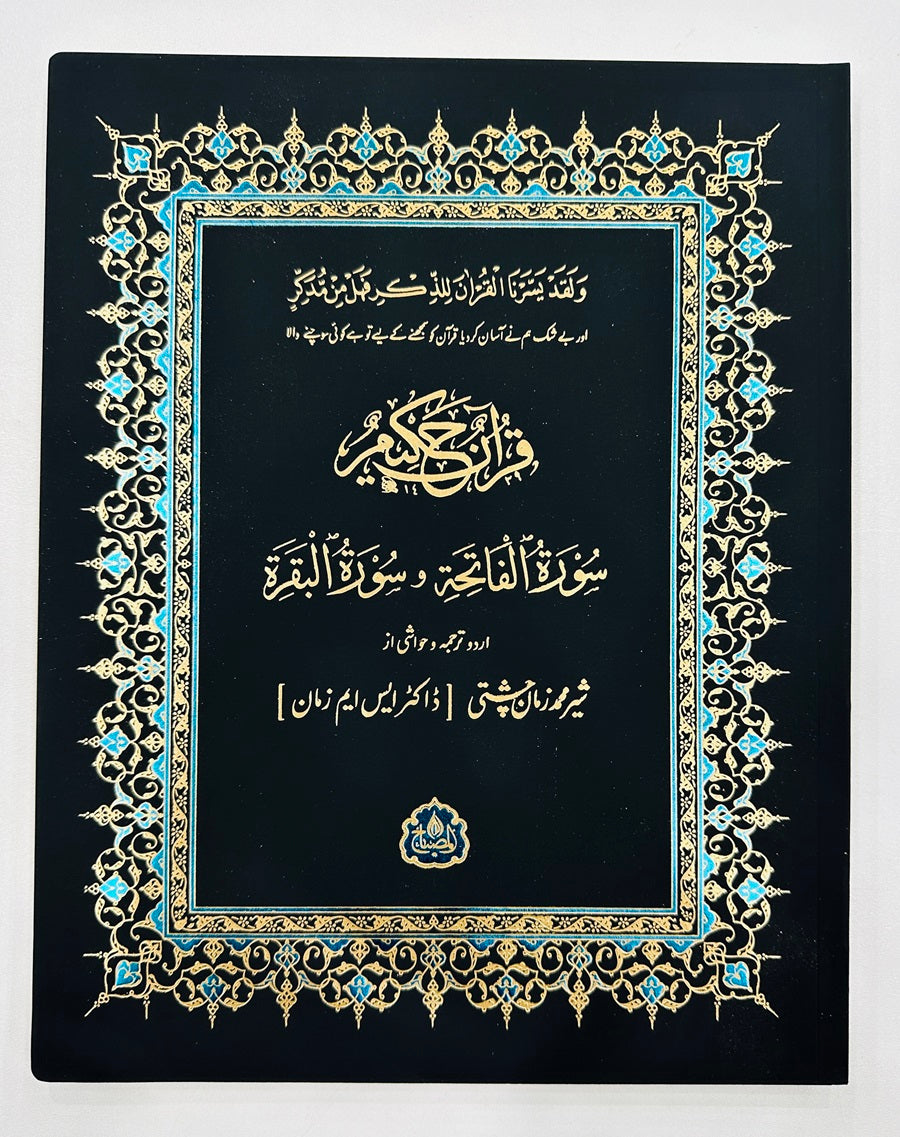 وَلَقَدْ يَسَّرْنَا الْقُرْاٰنَ لِلذِّكْرِ فَهَلْ مِنْ مُّدَّكِرٍ
اور بے شک ہم نے آسان کر دیا قرآن کو سمجھنے کے لیے تو ہے کوئی سوچنے والا
قرآن حکیم
سُوْرَةُ الْفَاتِحَةِ و سُوْرَةُ الْبَقَرَة
اردو ترجمہ و حواشی از
شیر محمد زمان چشتی [ ڈاکٹر ایس ایم زمان ]
المصباح